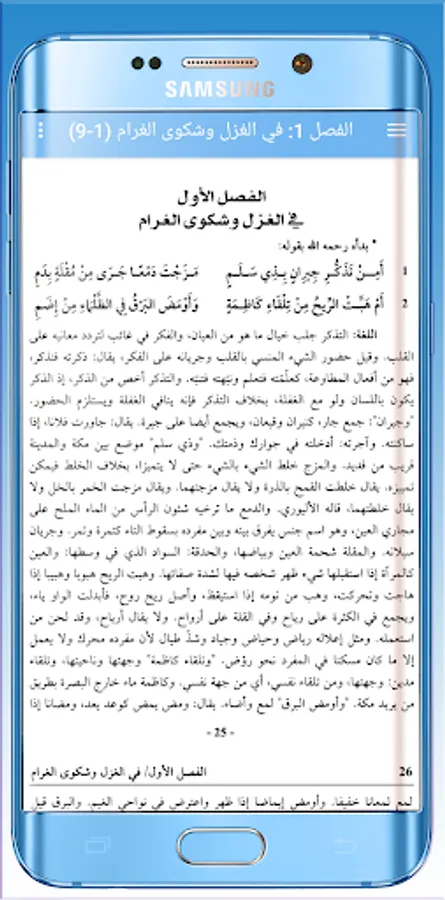 SAMSUNG
الفصل 1: في الغزل وشكوى الغرام (1-9)
الفصل الأول
في الغزل وشكوى الغرام
* بدأه رحمه الله بقوله:
1 أَمِـنْ تَذَكُّـرِ جِيرانٍ بِـذِي سَـلَـمٍ مَـزَجْتَ دَمْعًـا جَـرَى مِنْ مُقْلَةٍ بِدَمِ
2 أَمْ هَبَّـتْ الرِّيحُ مِنْ تِلْقَاءِ كَاظِمَـةٍ وَأَوْمَضَ البَرْقُ فِي الظَّلْمَاءِ مِنْ إِضَـمِ
اللغة: التذكر جلب خيال ما هو من العيان، والفكر في غائب لتردد معانيه على
القلب، وقيل حضور الشيء المنسي بالقلب وجريانه على الفكر، يقال: ذكرته فتذكر،
فهو من أفعال المطاوعة، كعلّمته فتعلم ونبّهته فتنبّه. والتذكر أخص من الذكر، إذ الذكر
يكون باللسان ولو مع الغفلة، بخلاف التذكر فإنه ينافي الغفلة ويستلزم الحضور.
"وجيران": جمع جار، كنيران وقيعان، ويجمع أيضا على جيرة. يقال: جاورت فلانا، إذا
ساكنته. وآجرته: أدخلته في جوارك وذمتك. "وذي سلم" موضع بين مكة والمدينة
قريب من قديد. والمزج خلط الشيء بالشيء حتى لا يتميزا، بخلاف الخلط فيمكن
تمييزه، يقال خلطت القمح بالذرة ولا يقال مزجتهما. ويقال مزجت الخمر بالخل ولا
يقال خلطتهما، قاله الأليوري. والدمع ما ترخيه شئون الرأس من الماء الملح على
مجاري العين، وهو اسم جنس يفرق بينه وبين مفرده بسقوط التاء كتمرة وتمر. وجريان
سيلانه. والمقلة شحمة العين وبياضها، والحدقة: السواد الذي في وسطها: والعين
كالمرآة إذا استقبلها شيء ظهر شخصه فيها لشدة صفائها. وهبت الريح هبوبا وهبيبا إذا
هاجت وتحركت، وهب من نومه إذا استيقظ، وأصل ريح روح، فأبدلت الواو ياء،
ويجمع في الكثرة على رياح وفي القلة على أرواح. ولا يقال أرياح، وقد لحن من
استعمله. ومثل إعلاله رياض وحياض وجياد وشذّ طيال لأن مفرده محرك ولا يعمل
إلا ما كان مسكنا في المفرد نحو روْض. "وتلقاء كاظمة" وجهتها وناحيتها، وتلقاء
مدين: وجهتها، ومن تلقاء نفسي، أي من جهة نفسي. وكاظمة ماء خارج البصرة بطريق
من يريد مكة. "وأومض البرق" لمع وأضاء. يقال: ومض يمض كوعد يعد، ومضانا إذا
- 25 -
26 الفصل الأول/ في الغزل وشكوى الغرام
لمع لمعانا خفيفا. وأومض إيماضا إذا ظهر واعترض في نواحي الغيم. والبرق قيل